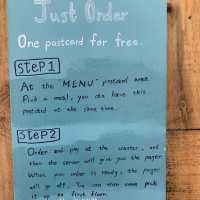 Just Order
One postcard for free.
STEP 1
At the "MENU" postcard area
Pick a meal, you can have this
postcard at the same time.
STEP 2
Order and pay at the counter, and
then the server will give you the pager
When you order is ready, the pager
will go off. You can then come pick
it up on first floor.